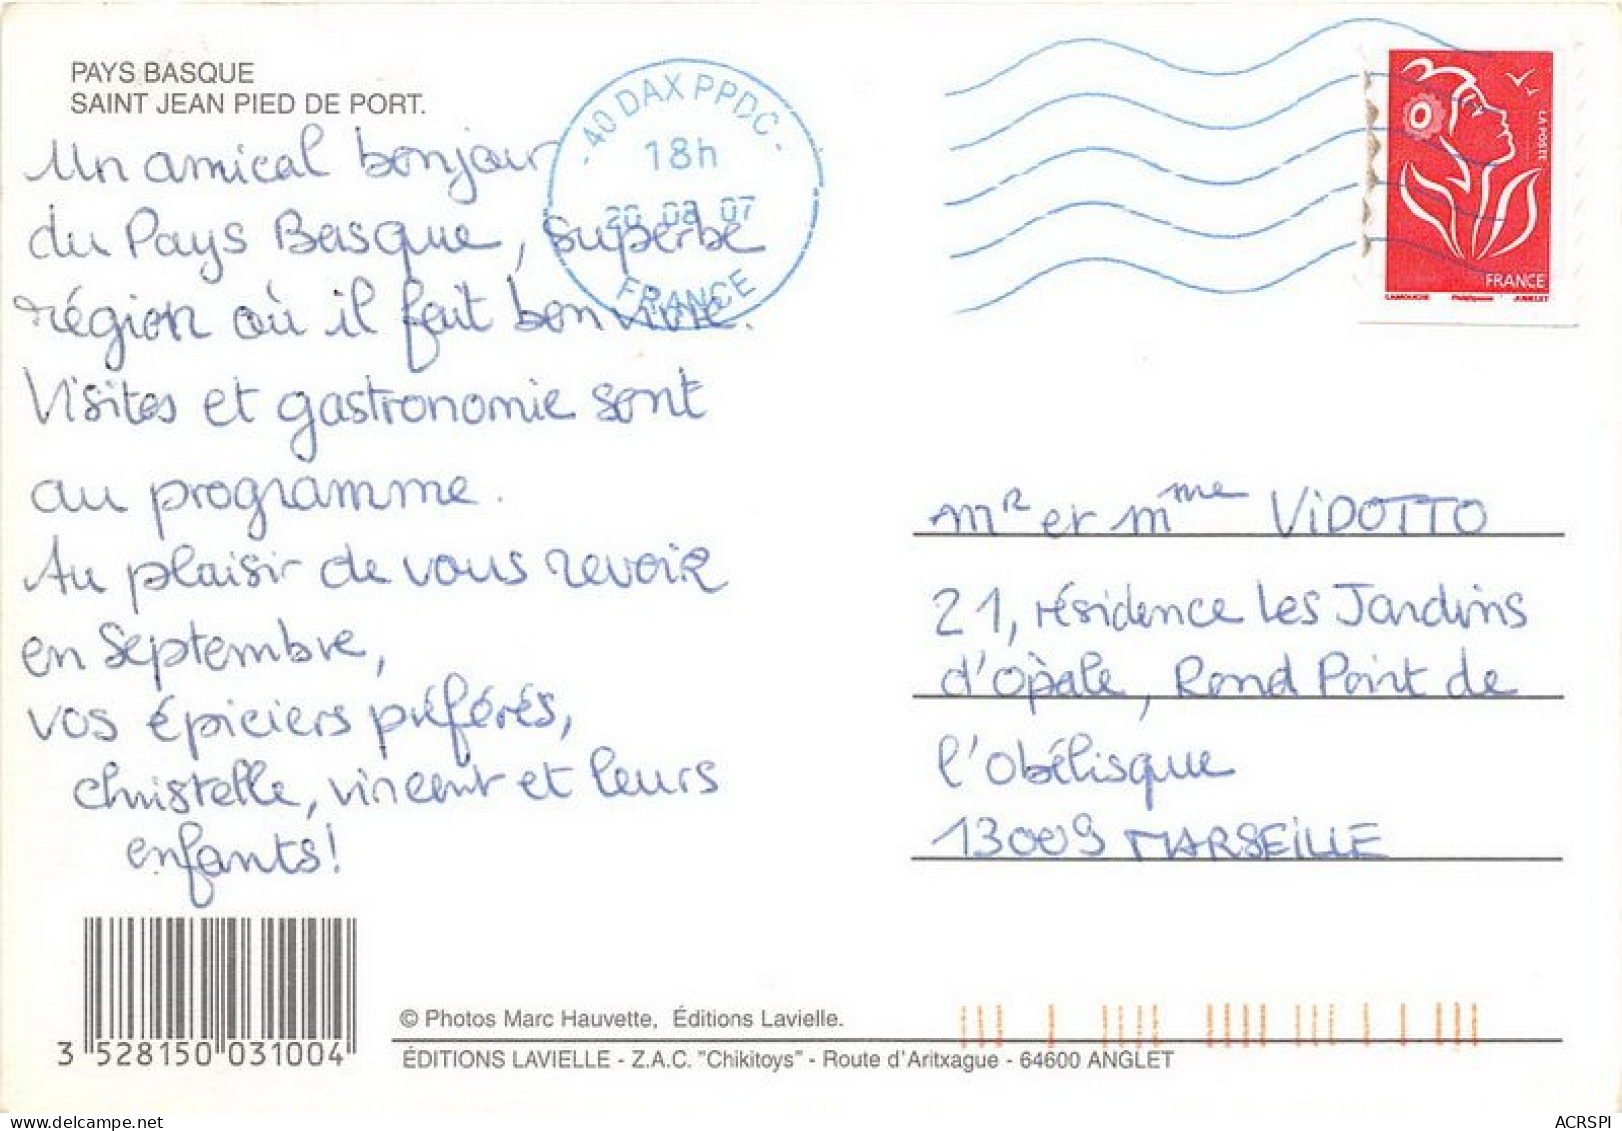 PAYS BASQUE
SAINT JEAN PIED DE PORT.
Un amical bonjour
du Pays Basque, superbe
région où il fait bon vivre.
Visites et gastronomie sont
au programme.
Au plaisir de vous revoir
en Septembre,
vos épiciers préférés,
christelle, vincent et leurs
enfants!
- 40 DAX PPDC -
18h
20 08 07
FRANCE
LA POSTE
FRANCE
LAMOUCHE Phil@poste JUMELET
Mr et Mme VIDOTTO
21, résidence Les Jardins
d'Opale, Rond Point de
l'Obélisque
13009 MARSEILLE
3 528150 031004
© Photos Marc Hauvette, Éditions Lavielle.
ÉDITIONS LAVIELLE - Z.A.C. "Chikitoys" - Route d'Aritxague - 64600 ANGLET
ACRSPI